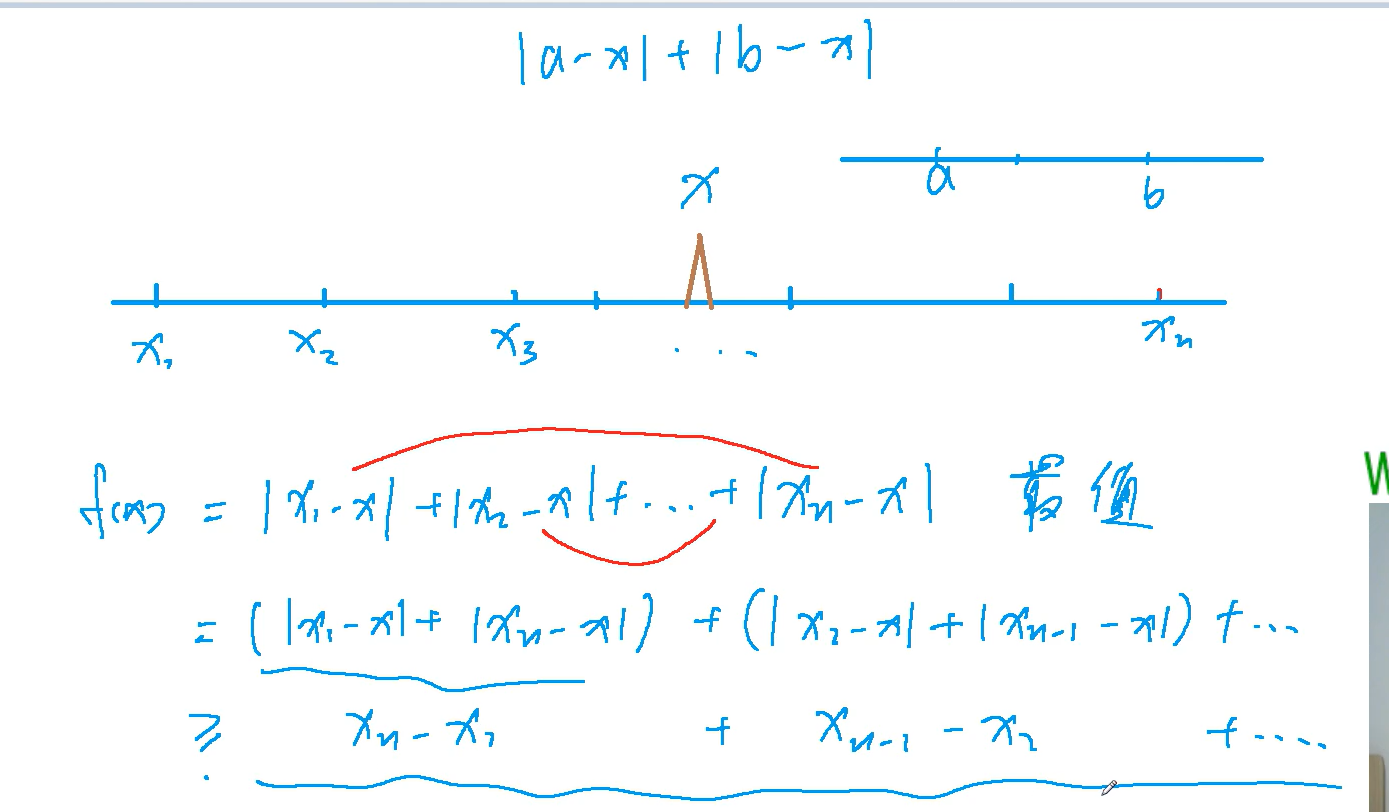 |a-x|+|b-x|
a b
x
x₁ x₂ x₃ ... xₙ
f(x) = |x₁-x|+|x₂-x|+...+|xₙ-x| 最值
= (|x₁-x|+|xₙ-x|) + (|x₂-x|+|xₙ₋₁-x|) + ...
≥ xₙ-x₁ + xₙ₋₁-x₂ + ....
W